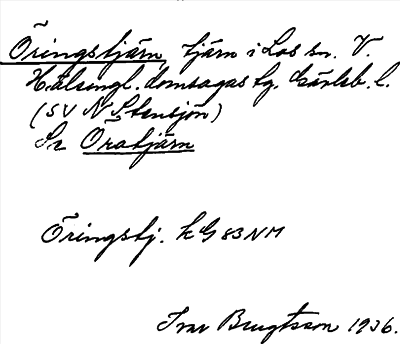 Öringstjärn, tjärn i Los sn. V.
Hälsingl. domsagas tg. Gävleb. l.
(SV N Stensjön)
Se Öratjärn
Öringstj. k G 83 NM
Ivar Bengtsson 1936.